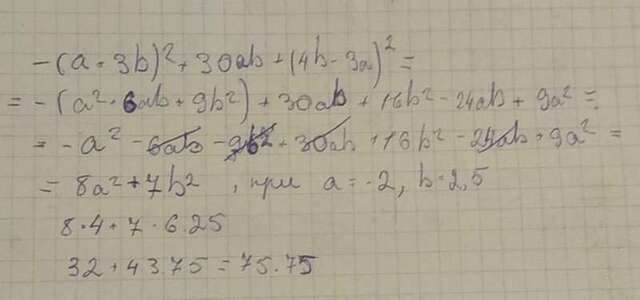 -(a + 3b)² + 30ab + (4b - 3a)² =
= -(a² + 6ab + 9b²) + 30ab + 16b² - 24ab + 9a² =
= -a² - 6ab - 9b² + 30ab + 16b² - 24ab + 9a² =
= 8a² + 7b² , при a = -2, b = 2,5
8·4 + 7·6.25
32 + 43.75 = 75.75